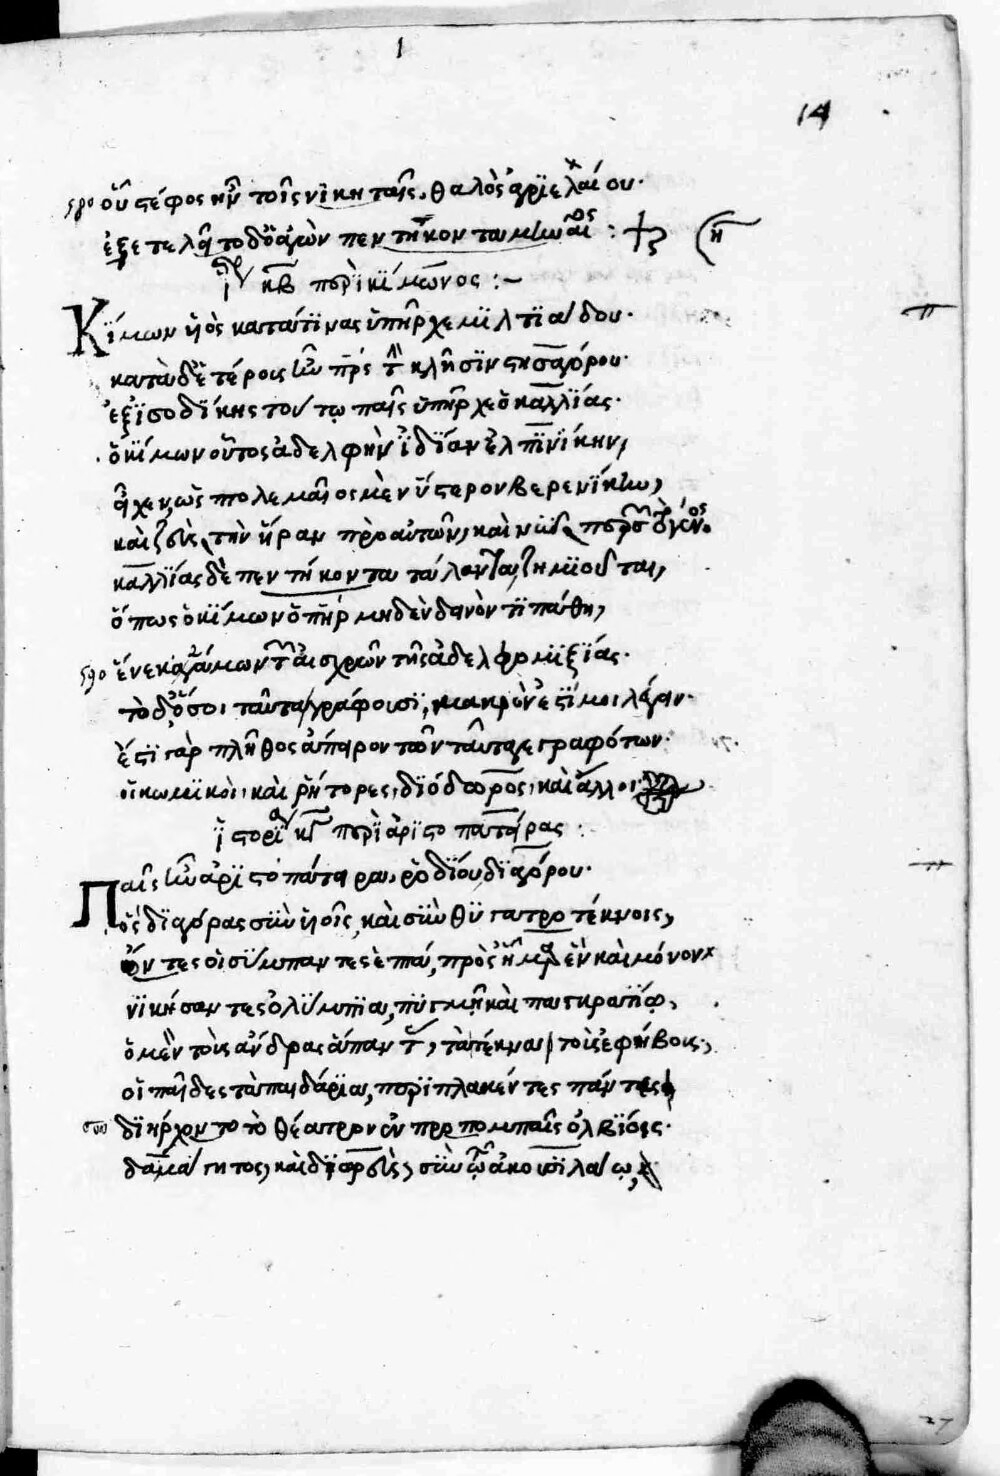 14
580 οὗ στέφος ἦν τοῖς νικηταῖς, θαλὸς ἀγριελαίου·
ἐξετελεῖτο δ' ὁ ἀγὼν πεντηκονταμηνιαῖος :
κβ περὶ κίμωνος :~
Κίμων υἱὸς κατά τινας ὑπῆρχε μιλτιάδου·
κατὰ δ' ἑτέροις ἦν πρὸς τ κλῆσιν στησαγόρου·
ἐξ ἰσοδίκης τούτῳ παῖς ὑπῆρχε ὁ καλλίας·
ὁ κίμων οὗτος ἀδελφὴν ἰδίαν ἐλπινίκην,
εἶχεν, ὡς πολεμαῖος μὲν ὕστερον βερενίκην,
καὶ ζεὺς τὴν ἥραν πρὸ αὐτῶν, καὶ νῦν περσῶν γένος
καλλίας δὲ πεντήκοντα τάλαντα ζημιοῦται,
ὅπως ὁ κίμων ὁ πὴρ μηδὲν δεινόν τι πάθῃ,
590 ἕνεκα γάμων τ αἰσχρῶν τῆς ἀδελφομιξίας·
τὸ δ' ὅσοι ταῦτα γράφουσι, μακρὸν ἐστί μοι λέγειν·
ἔστι γὰρ πλῆθος ἄπειρον τῶν ταῦτα γεγραφότων·
οἱ κωμικοὶ, καὶ ῥήτορες, διόδωρος, καὶ ἄλλοι·
ἱστορία κγ περὶ ἀριστοπατείρας :
Παῖς ἦν ἀριστοπάτειρα, ῥοδίου διαγόρου·
ὃς διαγόρας σὺν υἱοῖς, καὶ σὺν θυγατρο τέκνοις,
ὄντες οἱ σύμπαντες ἑπτά, πρὸς ἦμαρ ἓν καὶ μόνον
νικήσαντες ὀλύμπια, πυγμῇ καὶ παγκρατίῳ,
ὁ μὲν τοὺς ἄνδρας ἅπαντ, τὰ τέκνα τοὺς ἐφήβους,
οἱ παῖδες τὰ παιδάρια, περιπλακέντες πάντες
διήρχοντο τὸ θέατρον ἐν προπομπαῖς ὀλβίοις·
δαμάγητος, καὶ διαγρεὺς, σὺν τῷ ἀκουσιλάῳ,